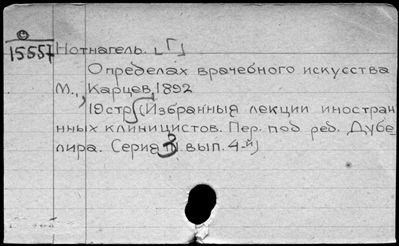 15557 Нотнагель. [Г]
Определах врачебного искусства
М., Карцев, 1892
19 стр (Избранныя лекции иностран
нных клиницистов. Пер. под ред. Дубе
лира. Серия 3 вып. 4-й)